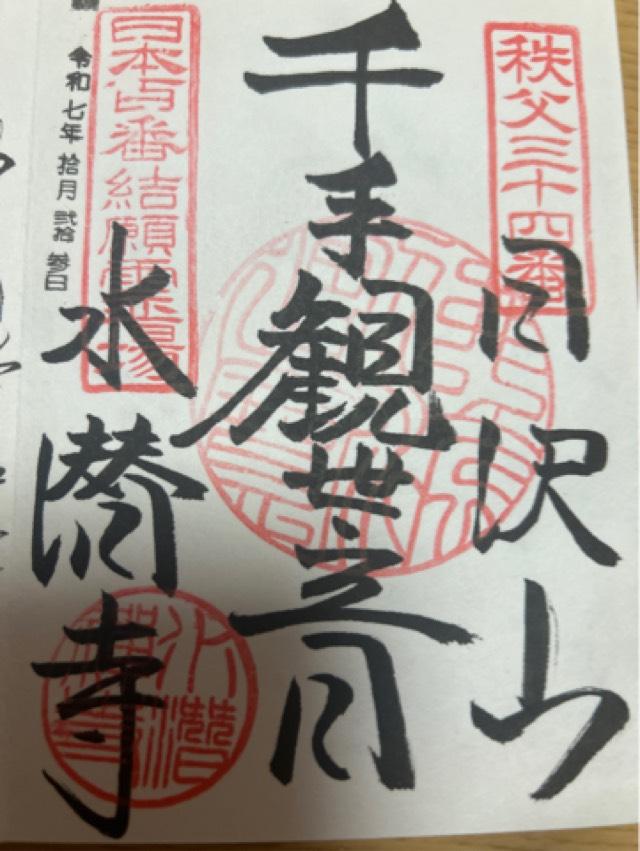 秩父三十四番
日沢山
千手観世音
日本百番結願霊場
水潜寺
令和七年 拾月 弐拾参日